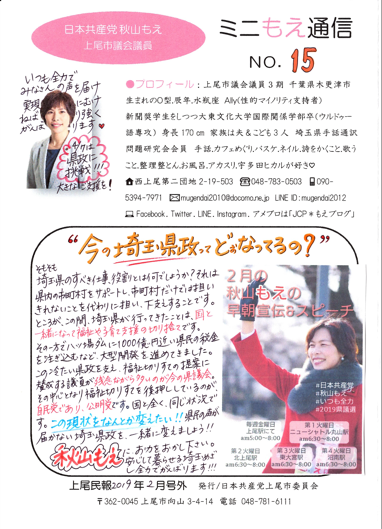 日本共産党 秋山もえ
上尾市議会議員
ミニもえ通信
NO. 15
いつも全力で
みなさんの声を届け
実現
ねばり強く
がんばります
今度は
県政に
挑戦!!
大きなご支援を!
●プロフィール:上尾市議会議員3期 千葉県木更津市
生まれのO型、辰年、水瓶座 Ally(性的マイノリティ支持者)
新聞奨学生をしつつ大東文化大学国際関係学部卒(ウルドゥー
語専攻) 身長170cm 家族は夫&こども3人 埼玉県手話通訳
問題研究会会員 手話、カフェめぐり、バスケ、ネイル、詩をかくこと、歌う
こと、整理整とん、お風呂、アカスリ、宇多田ヒカルが好き♡
西上尾第二団地2-19-503 ☎048-783-0503 090-
5394-7971 mugendai2010@docomo.ne.jp LINE ID:mugendai2012
Facebook、Twitter、LINE、Instagram、アメブロは「JCP*もえブログ」
“今の埼玉県政ってどぉなってるの?”
そもそも
埼玉県のすべき仕事、役割とは何でしょうか?それは
県内の市町村をサポートし、市町村だけでは担い
きれないことを代わりに担い、下支えすることです。
ところが、この間、埼玉県が行ってきたことは、国と
一緒になって福祉や子育て支援の切り捨てです。
その一方で八ッ場ダムに1000億円近い県民の税金
を注ぎ込むなど、大型開発を進めてきました。
このような県政を支え、福祉切りすての提案に
賛成する議員が残念ながら多いのが今の県議会。
その中心となり福祉切りすてを後押ししているのが、
自民党であり、公明党です。国と全く、同じ状況で
す。この現状をなんとか変えたい!!県民の声が
届かない埼玉県政を、一緒に変えましょう!!
秋山もえ
に お力をおかし下さい。
安心して暮らせる埼玉めざ
し全力でがんばります!!!
2月の
秋山もえの
早朝宣伝&スピーチ
#日本共産党
#秋山もえ
#いつも全力
#2019県議選
毎週金曜日
上尾駅にて
am5:00〜8:00
第1火曜日
ニューシャトル丸山駅
am6:30〜8:00
第2火曜日
北上尾駅
am6:30〜8:00
第3火曜日
東大宮駅
am6:30〜8:00
第4火曜日
沼南駅
am6:30〜8:00
上尾民報2019年2月号外 発行/日本共産党上尾市委員会
〒362-0045 上尾市向山3-4-14 電話 048-781-6111